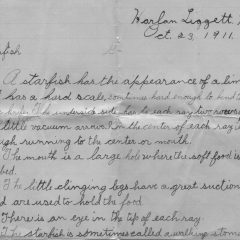 Harlan Liggett
Oct. 23, 1911.
fish
A starfish has the appearance of a
has a hard scale, sometimes hard enough to
The underside side has to each ray two rows
little vacuum arrows. In the center of each ray is
ough running to the center or mouth.
The mouth is a large hole where the soft food is
d.
The little clinging legs have a great suction
d are used to hold the food.
There is an eye in the tip of each ray.
The starfish is sometimes called a walking stom